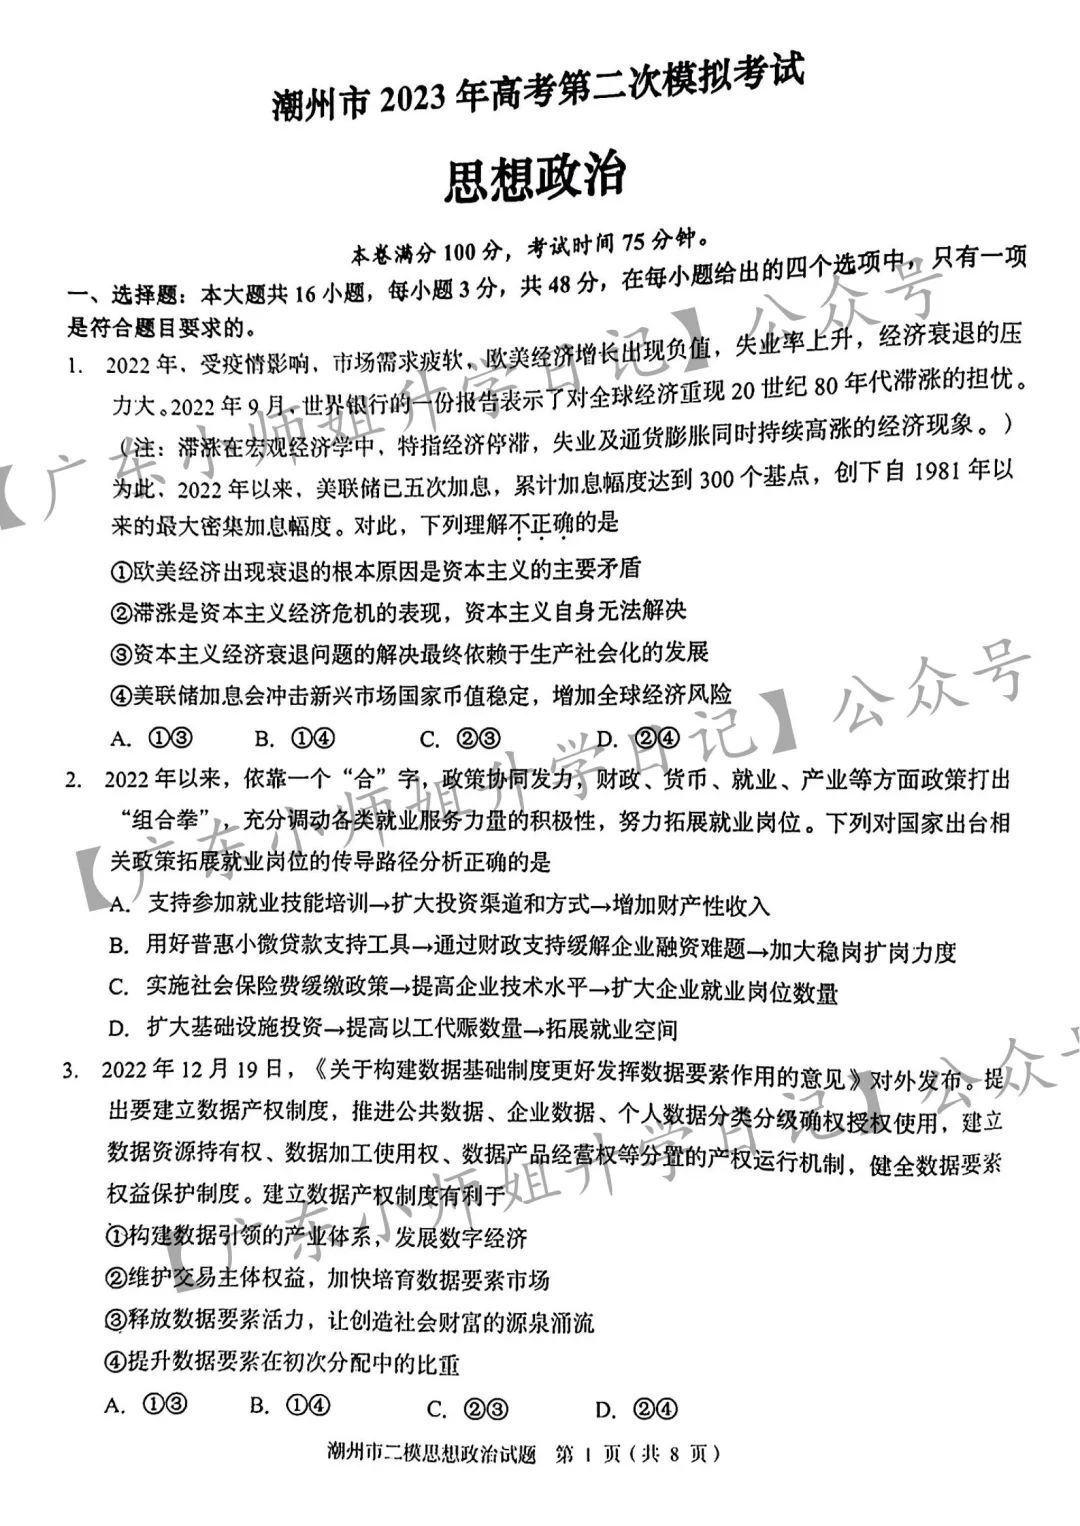 潮州市 2023 年高考第二次模拟考试
思想政治
本卷满分 100 分，考试时间 75 分钟。
一、选择题：本大题共 16 小题，每小题 3 分，共 48 分，在每小题给出的四个选项中，只有一项
是符合题目要求的。
1. 2022 年，受疫情影响，市场需求疲软，欧美经济增长出现负值，失业率上升，经济衰退的压
力大。2022 年 9 月，世界银行的一份报告表示了对全球经济重现 20 世纪 80 年代滞涨的担忧。
（注：滞涨在宏观经济学中，特指经济停滞，失业及通货膨胀同时持续高涨的经济现象。）
为此，2022 年以来，美联储已五次加息，累计加息幅度达到 300 个基点，创下自 1981 年以
来的最大密集加息幅度。对此，下列理解不正确的是
①欧美经济出现衰退的根本原因是资本主义的主要矛盾
②滞涨是资本主义经济危机的表现，资本主义自身无法解决
③资本主义经济衰退问题的解决最终依赖于生产社会化的发展
④美联储加息会冲击新兴市场国家币值稳定，增加全球经济风险
A. ①③ B. ①④ C. ②③ D. ②④
2. 2022 年以来，依靠一个“合”字，政策协同发力，财政、货币、就业、产业等方面政策打出
“组合拳”，充分调动各类就业服务力量的积极性，努力拓展就业岗位。下列对国家出台相
关政策拓展就业岗位的传导路径分析正确的是
A. 支持参加就业技能培训→扩大投资渠道和方式→增加财产性收入
B. 用好普惠小微贷款支持工具→通过财政支持缓解企业融资难题→加大稳岗扩岗力度
C. 实施社会保险费缓缴政策→提高企业技术水平→扩大企业就业岗位数量
D. 扩大基础设施投资→提高以工代赈数量→拓展就业空间
3. 2022 年 12 月 19 日，《关于构建数据基础制度更好发挥数据要素作用的意见》对外发布。提
出要建立数据产权制度，推进公共数据、企业数据、个人数据分类分级确权授权使用，建立
数据资源持有权、数据加工使用权、数据产品经营权等分置的产权运行机制，健全数据要素
权益保护制度。建立数据产权制度有利于
①构建数据引领的产业体系，发展数字经济
②维护交易主体权益，加快培育数据要素市场
③释放数据要素活力，让创造社会财富的源泉涌流
④提升数据要素在初次分配中的比重
A. ①③ B. ①④ C. ②③ D. ②④
潮州市二模思想政治试题 第 1 页（共 8 页）
【广东小师姐升学日记】公众号
【广东小师姐升学日记】公众号
【广东小师姐升学日记】公众